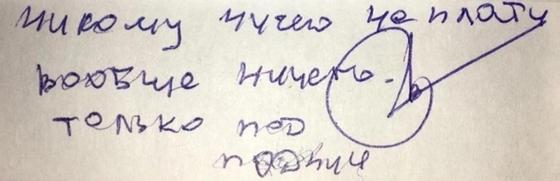 никому ничего не плату
вообще ничего.
только под
подпись